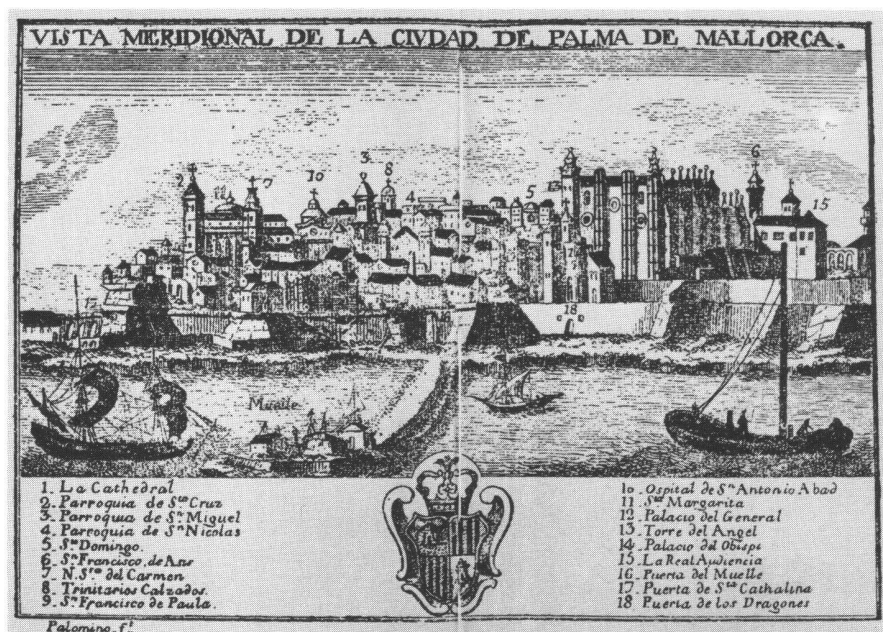 VISTA MERIDIONAL DE LA CIVDAD DE PALMA DE MALLORCA.
2 11 7 10 3 8 4 5 13 6 15
17 18
Muelle
1_ La Cathedral
2_ Parroquia de S.ta Cruz
3_ Parroquia de S.n Miguel
4_ Parroquia de S.n Nicolas
5_ S.to Domingo.
6_ S.n Francisco, de Asis
7_ N. S.ra del Carmen
8_ Trinitarios Calzados.
9_ S.n Francisco de Paula.
10_Ospital de S.n Antonio Abad
11_S.ta Margarita
12_Palacio del General
13_Torre del Angel
14_Palacio del Obispo
15_La Real Audiencia
16_Puerta del Muelle
17_Puerta de S.ta Cathalina
18 Puerta de los Dragones
Palomino f.t